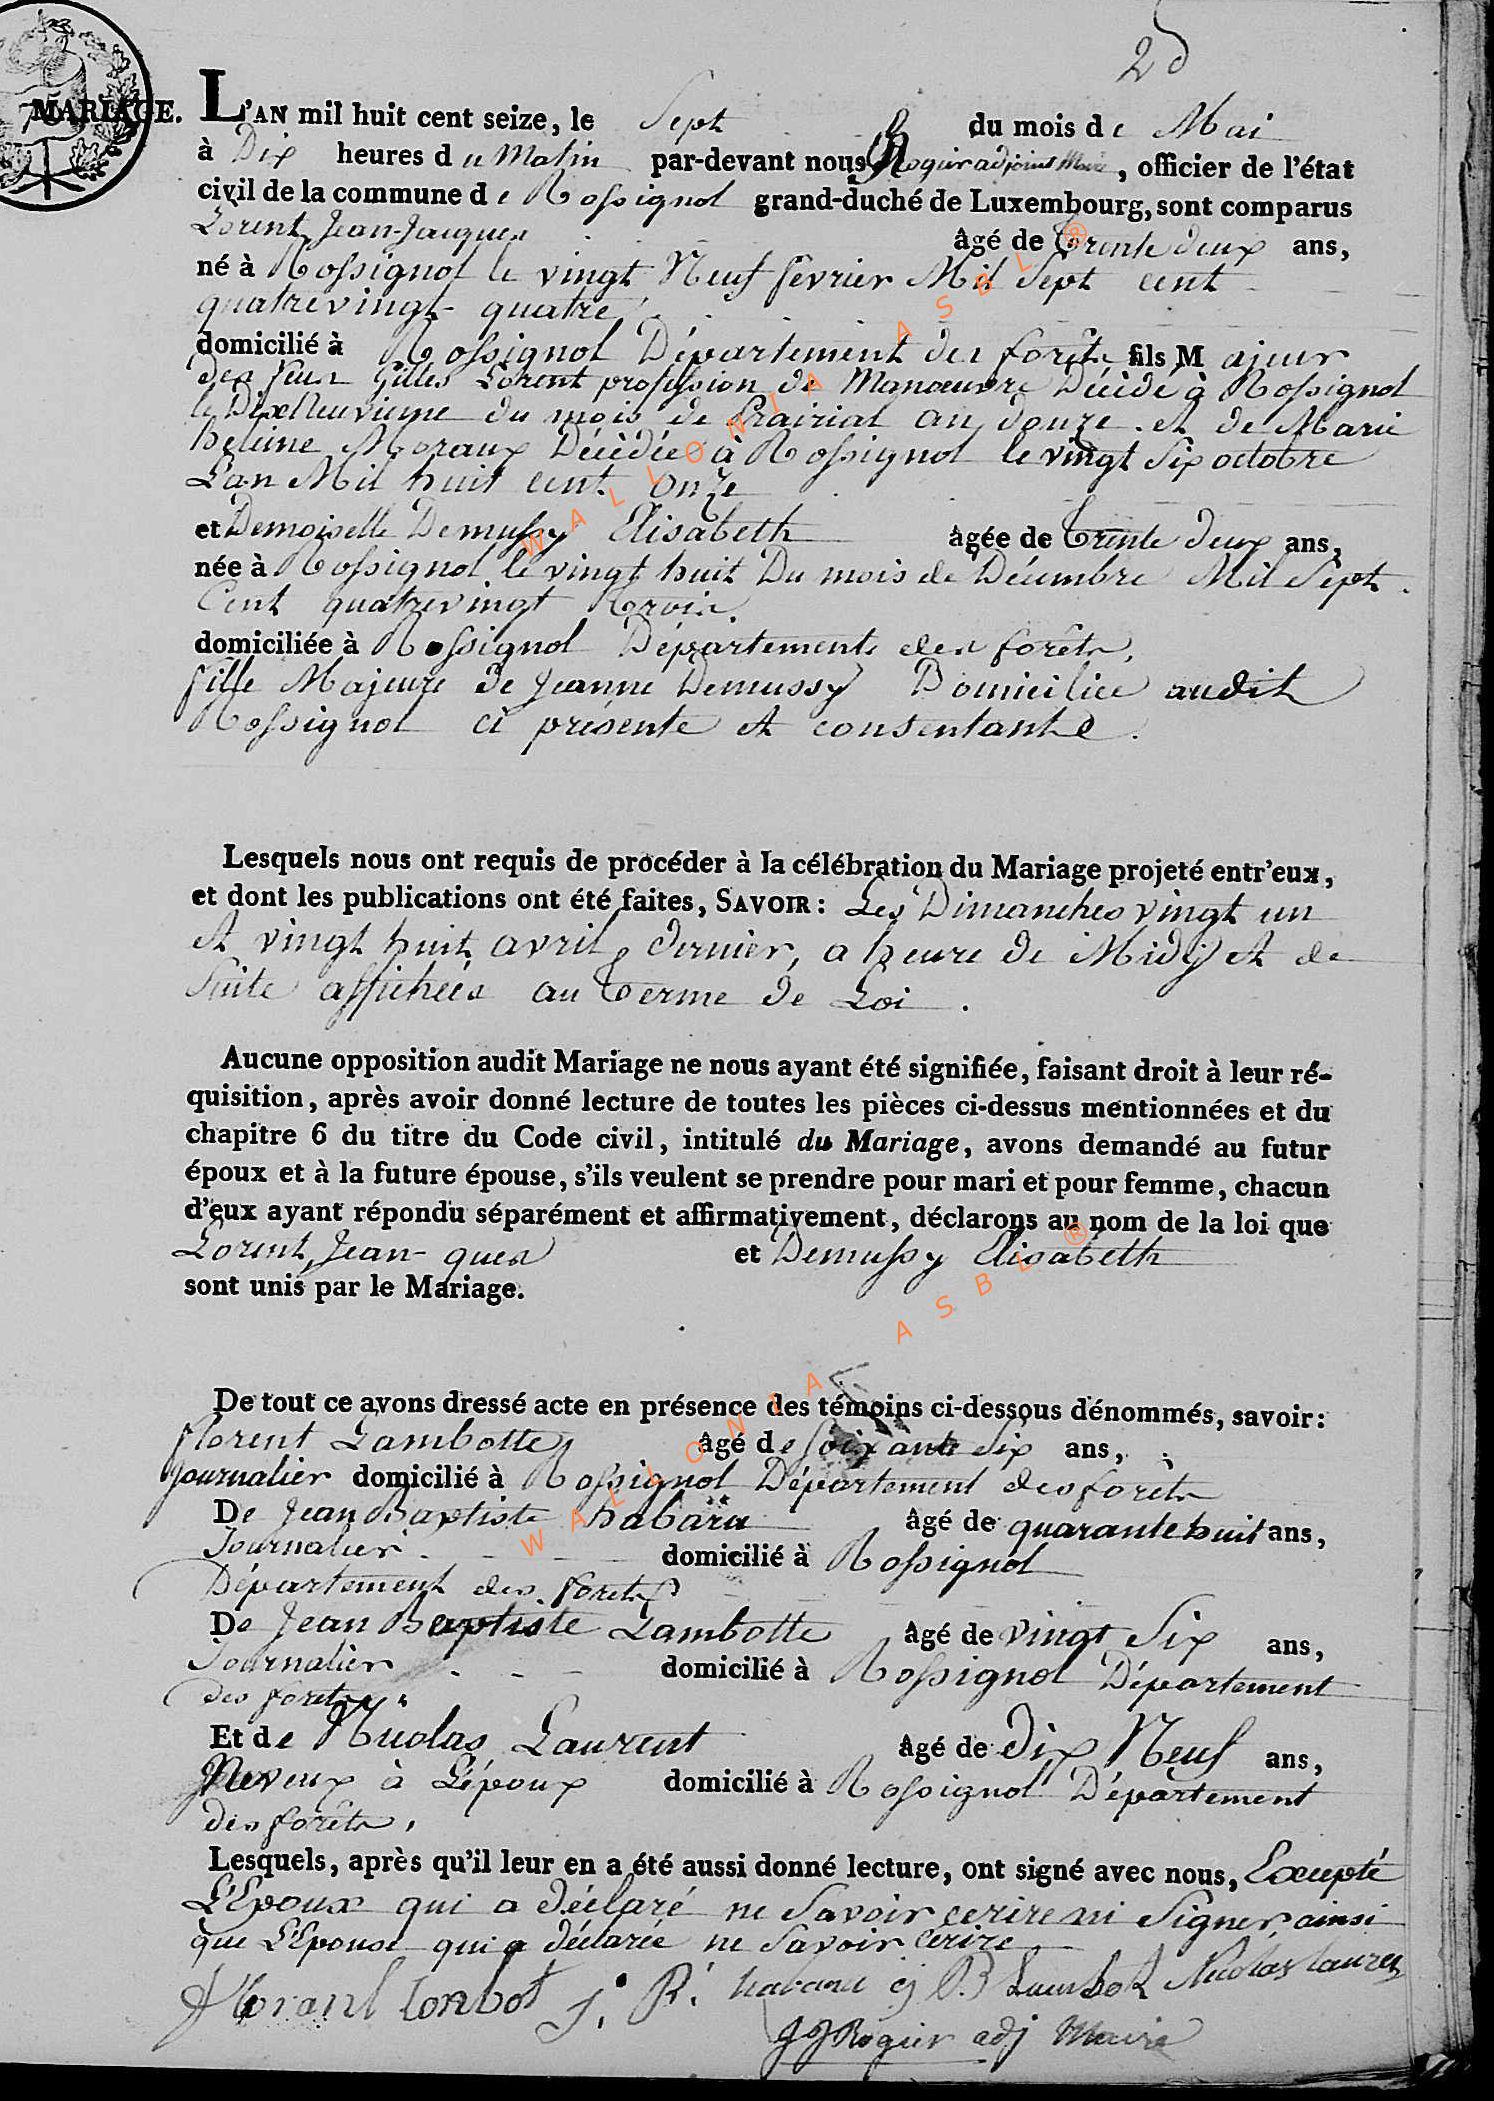 25
MARIAGE.
L'AN mil huit cent seize, le Sept du mois de Mai
à Dix heures du Matin par-devant nous Rogier adjoint Maire, officier de l'état
civil de la commune de Rossignol grand-duché de Luxembourg, sont comparus
Lorent Jean-Jacques âgé de Trente deux ans,
né à Rossignol le vingt Neuf fevrier Mil Sept cent
quatrevingt quatre
domicilié à Rossignol Département des forêts fils Majeur
des feux Gilles Lorent profession de Manœuvre Décédé à Rossignol
le Dixneuvieme du mois de Prairial an douze. et de Marie
heleine Moraux Décédée à Rossignol le vingt Six octobre
L'an Mil huit cent onze
et Demoiselle Demussy Elisabeth âgée de Trente deux ans,
née à Rossignol le vingt huit Du mois de Décembre Mil Sept
Cent quatrevingt trois.
domiciliée à Rossignol Département des forêts,
fille Majeure de Jeanne Demussy Domiciliee audit
Rossignol ci présente et consentante.
Lesquels nous ont requis de procéder à la célébration du Mariage projeté entr'eux,
et dont les publications ont été faites, SAVOIR: Les Dimanches vingt un
et vingt huit avril dernier, a heure de Midy et de
Suite affichées au Terme de Loi.
Aucune opposition audit Mariage ne nous ayant été signifiée, faisant droit à leur ré-
quisition, après avoir donné lecture de toutes les pièces ci-dessus mentionnées et du
chapitre 6 du titre du Code civil, intitulé du Mariage, avons demandé au futur
époux et à la future épouse, s'ils veulent se prendre pour mari et pour femme, chacun
d'eux ayant répondu séparément et affirmativement, déclarons au nom de la loi que
Lorent, Jean-ques et Demussy Elisabeth
sont unis par le Mariage.
De tout ce avons dressé acte en présence des témoins ci-dessous dénommés, savoir:
florent Lambotte âgé de soixante Six ans,
journalier domicilié à Rossignol Département des forêts
De Jean Baptiste habaru âgé de quarante huit ans,
Journalier domicilié à Rossignol
Département des forêts
De Jean Baptiste Lambotte âgé de vingt Six ans,
Journalier domicilié à Rossignol Département
des forets
Et de Nicolas Laurent âgé de dix Neuf ans,
Neveux à L'époux domicilié à Rossignol Département
des forêts,
Lesquels, après qu'il leur en a été aussi donné lecture, ont signé avec nous, Excepté
L'Epoux qui a déclaré ne Savoir ecrire ni Signer ainsi
que L'Epouse qui a déclarée ne Savoir Ecrire
florant Lonbot J. B. habaru J B Lambot Nicolas laurent
J J Rogier adj Maire
WALLONIA ASBL ®
WALLONIA ASBL ®